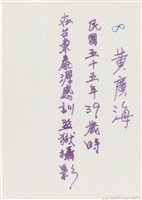 ∞ 黃廣海
民國五十五年39歲時
在台東泰源感訓監獄攝影